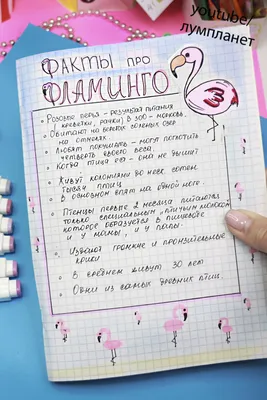 youtube/
лумпланет
ФАКТЫ ПРО
ФЛАМИНГО
• Розовые перья - результат питания
(креветки, рачки). В зоо - морковь.
• Обитают на берегах соленых озер
на отмелях.
• Любят покушать - могут поглотить
четверть своего веса.
• Когда птица ест - она не дышит!
• Живут колониями до неск. сотен
тысяч птиц
• В основном спят на одной ноге.
• Птенцы первые 2 месяца питаются
только специальным "птичьим молоком"
которое образуется в пищеводе
и у мамы, и у папы.
• Издают громкие и пронзительные
крики
• В среднем живут 30 лет
• Одни из самых древних птиц.